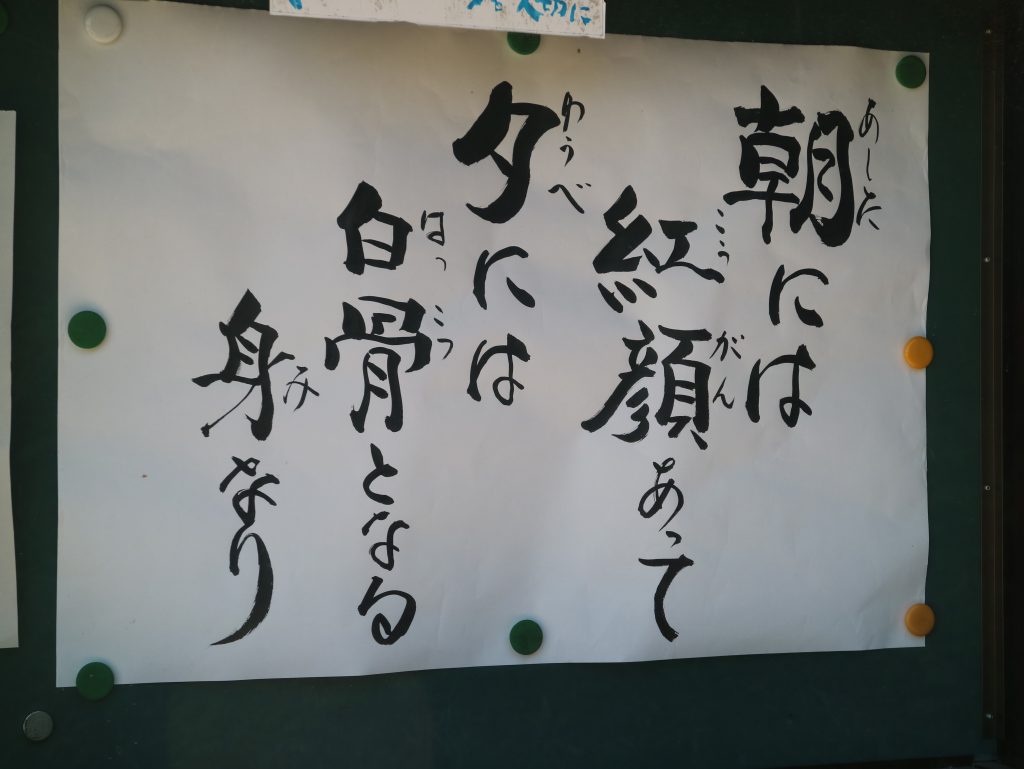 大切に
あした
朝には
こうがん
紅顔あって
ゆうべ
夕には
はっこつ
白骨となる
み
身なり